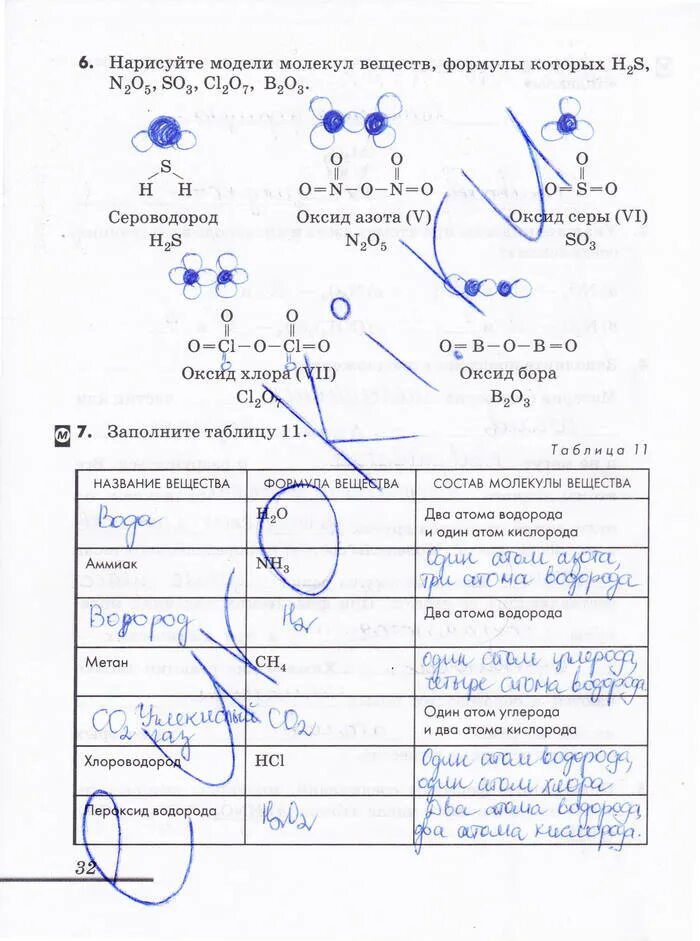 6. Нарисуйте модели молекул веществ, формулы которых H₂S,
N₂O₅, SO₃, Cl₂O₇, B₂O₃.
O O O
S O=N–O–N=O O=S=O
H H
Сероводород Оксид азота (V) Оксид серы (VI)
H₂S N₂O₅ SO₃
O O
O=Cl–O–Cl=O O=B–O–B=O
O O
Оксид хлора (VII) Оксид бора
Cl₂O₇ B₂O₃
М 7. Заполните таблицу 11.
Таблица 11
НАЗВАНИЕ ВЕЩЕСТВА ФОРМУЛА ВЕЩЕСТВА СОСТАВ МОЛЕКУЛЫ ВЕЩЕСТВА
Вода H₂O Два атома водорода
и один атом кислорода
Аммиак NH₃ Один атом азота,
три атома водорода
Водород H₂ Два атома водорода
Метан CH₄ один атом углерода,
четыре атома водорода
CO₂ Углекислый газ CO₂ Один атом углерода
и два атома кислорода
Хлороводород HCl Один атом водорода,
один атом хлора
Пероксид водорода H₂O₂ Два атома водорода,
два атома кислорода.
32